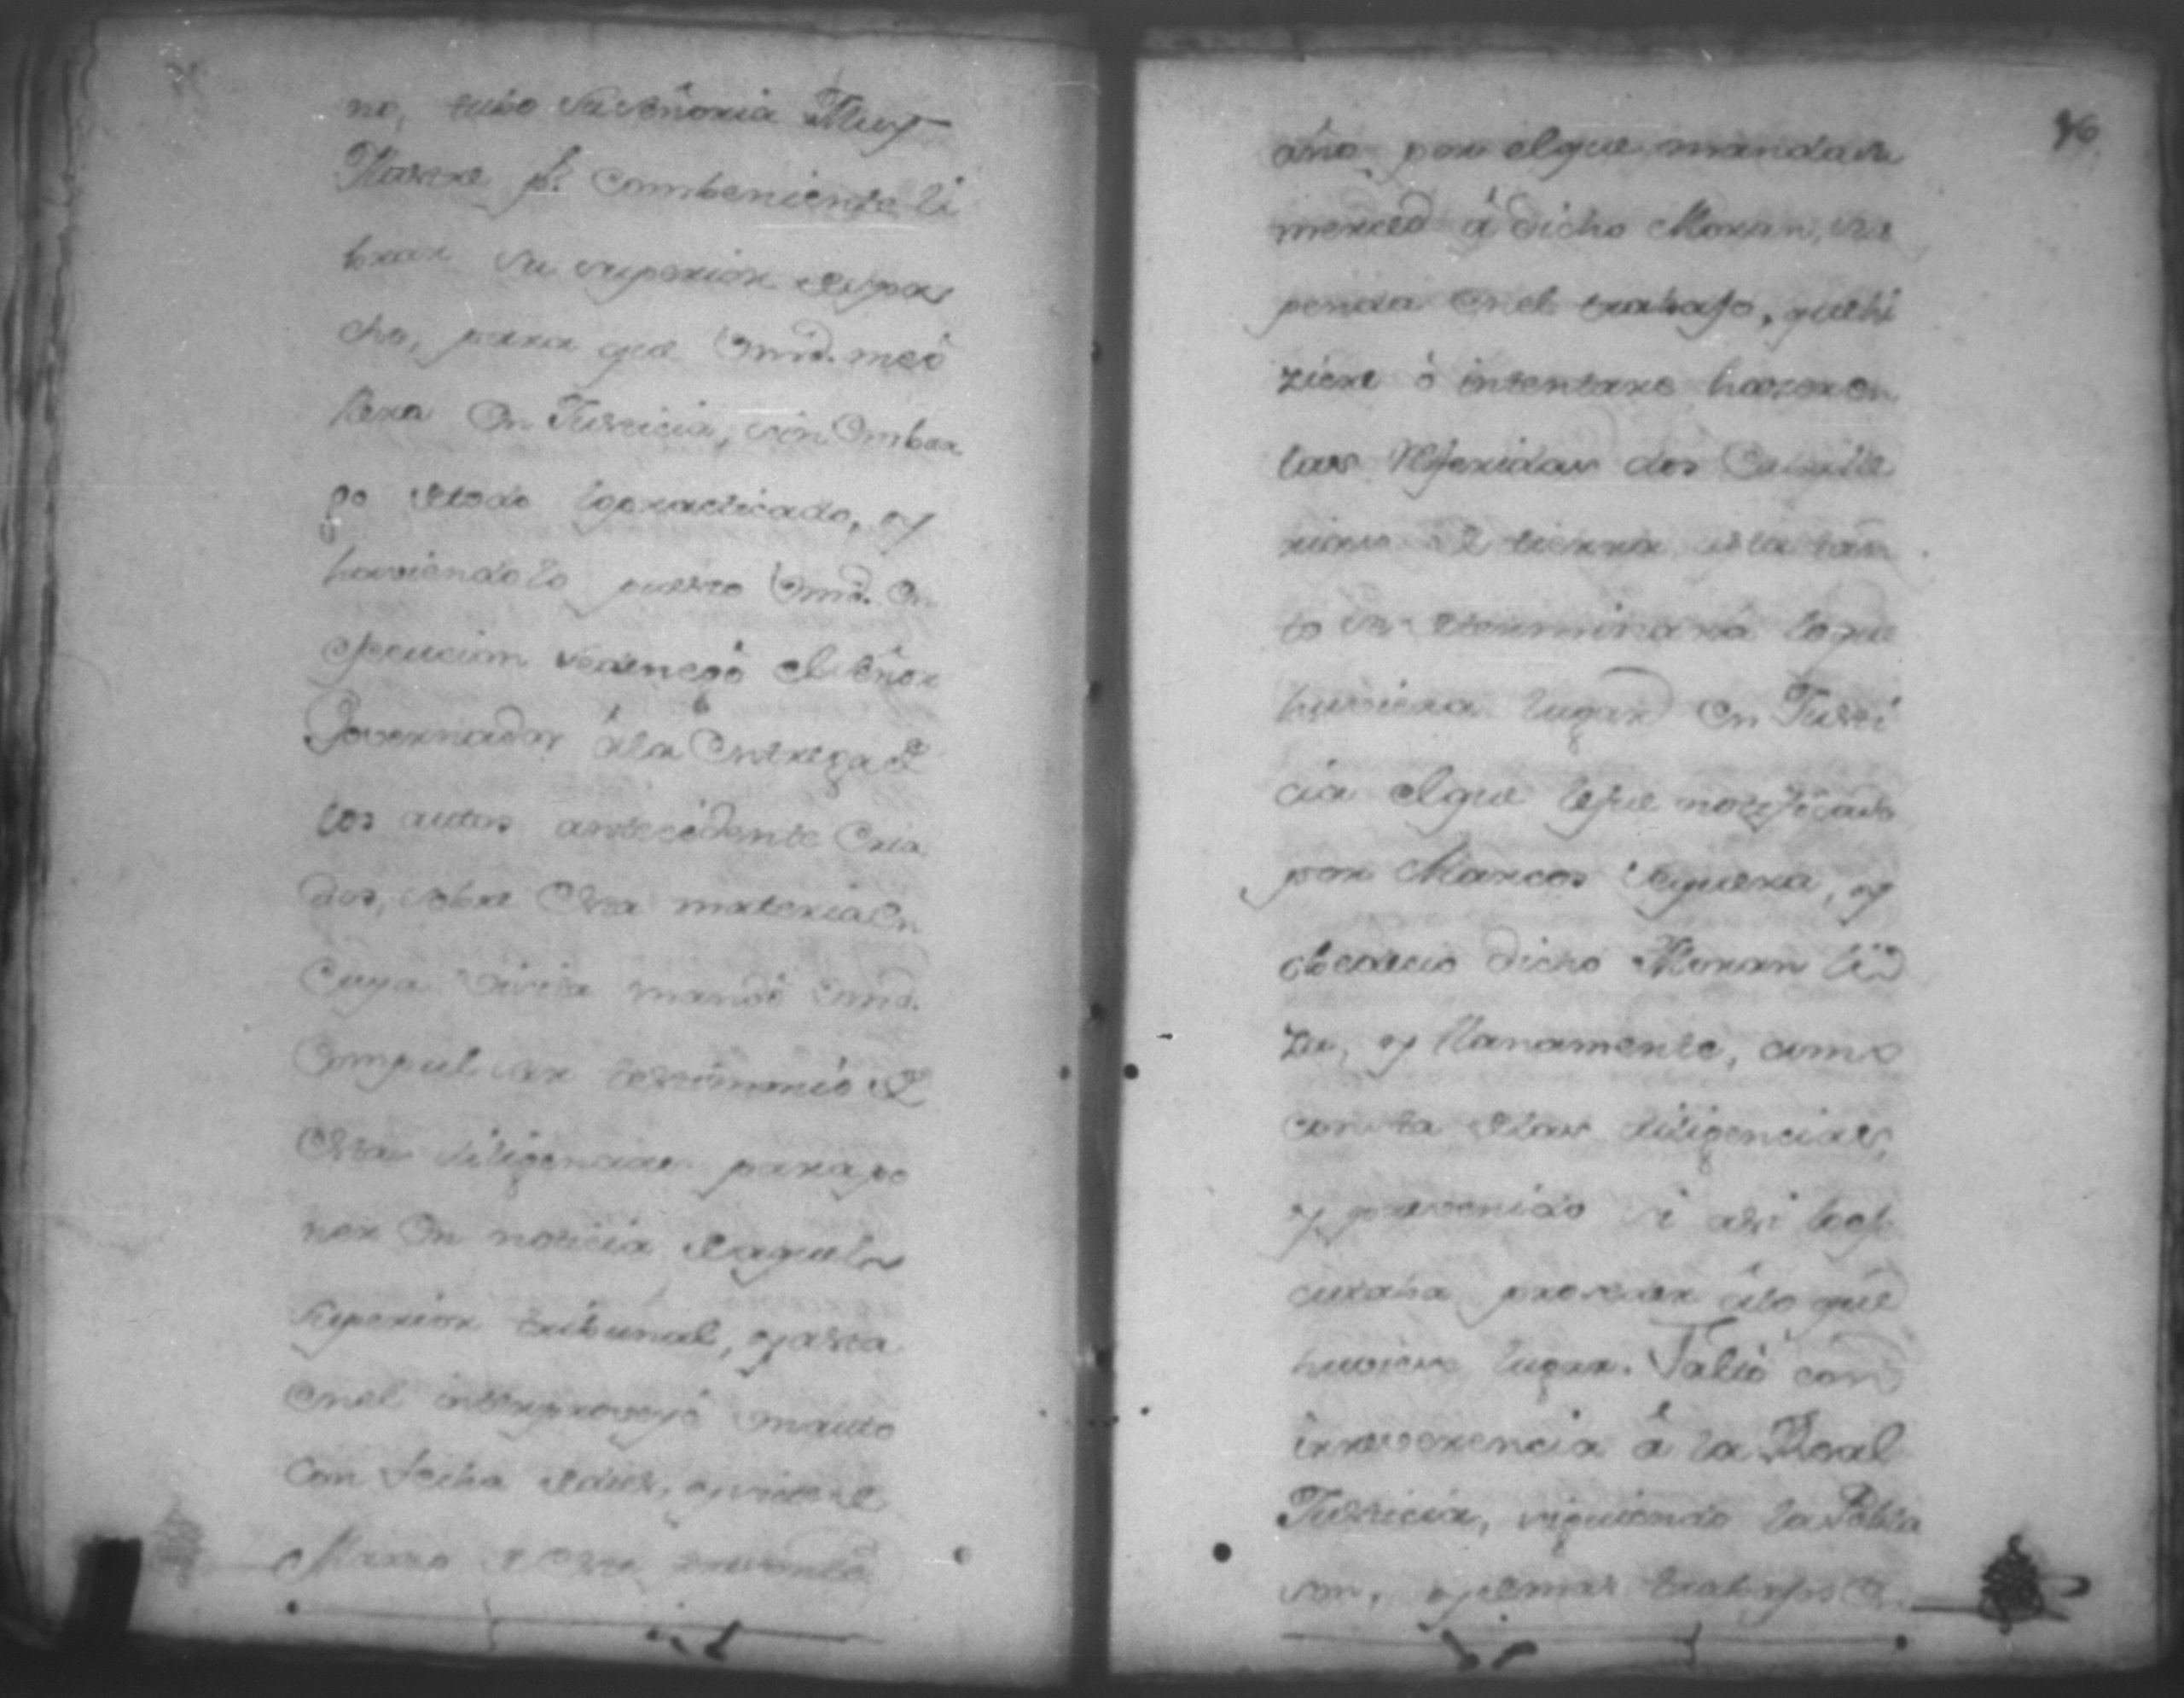 no, tubo su señoria Muy
Ilustre pr. combeniente li
brar su superior despa
cho, para que Vmd. me ò
llera En Justicia, sin Embar
go de todo lo practicado, y
haviendolo puesto Vmd. En
efecucion se denegò el señor
Governador à la Entrega de
los autos antecedente Cria
dos, sobre Esta materia En
Cuya vista mandò Vmd.
Compulsar testimonio de
Esta diligencias para po
ner En noticia de aquel
superior tribunal, y asta
Enel inter proveyò un auto
Con fecha de dies, y siete de
Marzo de Este presente
76
año por el que manda su
merced à dicho Moran, sus
penda En el trabajo, que hi
ziere ò intentare hazer en
las Referidas dos Caballe
rias de tierra ista tan
to se determinarà lo que
huviera lugar En Justi
cia el que le fue notificado
por Marcos Seguera, y
obedecio dicho Moran li
za, y llanamente, como
consta de las diligencias,
y prevenido si asi lo ef
cutaba proceder à lo que
huviere lugar. Faltò con
irreverencia à la Real
Justicia, siguiendo la Pobla
son, y demas trabajos En